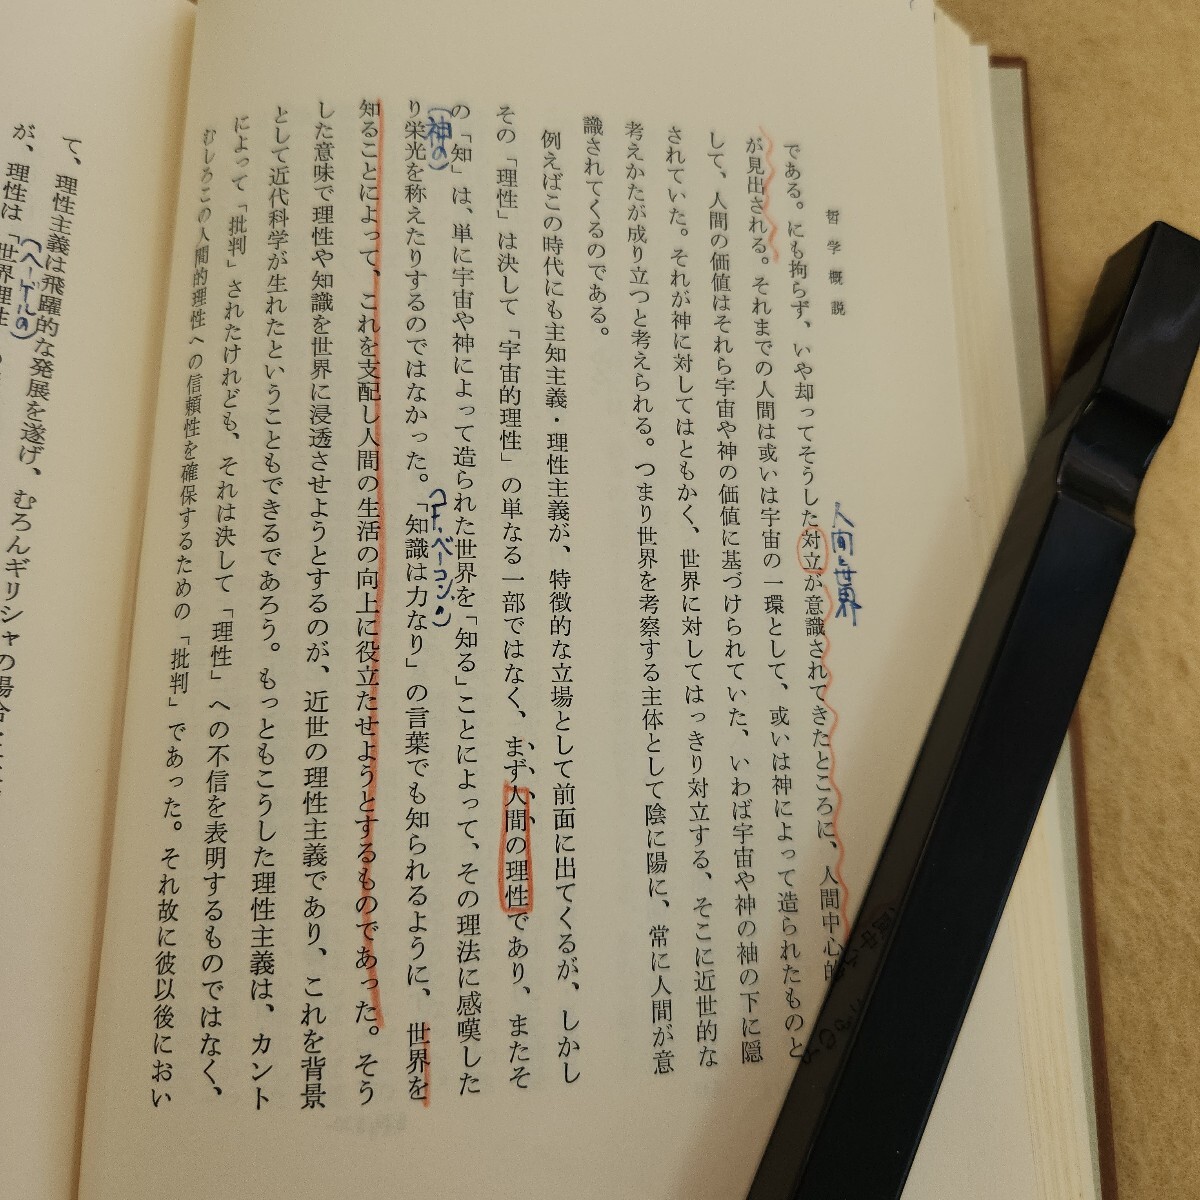 哲学概説
である。にも拘らず、いや却ってそうした対立が意識されてきたところに、人間中心的
が見出される。それまでの人間は或いは宇宙の一環として、或いは神によって造られたものと
して、人間の価値はそれら宇宙や神の価値に基づけられていた、いわば宇宙や神の袖の下に隠
されていた。それが神に対してはともかく、世界に対してはっきり対立する、そこに近世的な
考えかたが成り立つと考えられる。つまり世界を考察する主体として陰に陽に、常に人間が意
識されてくるのである。
例えばこの時代にも主知主義・理性主義が、特徴的な立場として前面に出てくるが、しかし
その「理性」は決して「宇宙的理性」の単なる一部ではなく、まず人間の理性であり、またそ
の「知」は、単に宇宙や神によって造られた世界を「知る」ことによって、その理法に感嘆した
り栄光を称えたりするのではなかった。「知識は力なり」の言葉でも知られるように、世界を
知ることによって、これを支配し人間の生活の向上に役立たせようとするものであった。そう
した意味で理性や知識を世界に浸透させようとするのが、近世の理性主義であり、これを背景
として近代科学が生れたということもできるであろう。もっともこうした理性主義は、カント
によって「批判」されたけれども、それは決して「理性」への不信を表明するものではなく、
むしろこの人間的理性への信頼性を確保するための「批判」であった。それ故に彼以後におい
人間と世界
(神の)
(F.ベーコン.)
て、理性主義は飛躍的な発展を遂げ、むろんギリシャの場合
が、理性は「世界理性
(ヘーゲルの)